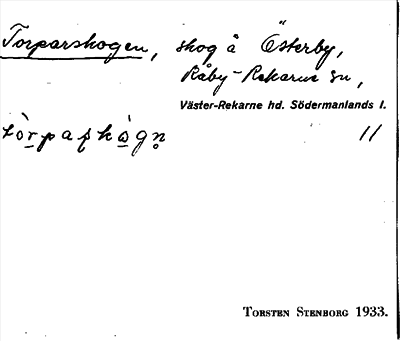 Torparskogen, skog å Österby,
Råby-Rekarne sn,
Väster-Rekarne hd. Södermanlands l.
tòrpaʂkògn̥ 11
TORSTEN STENBORG 1933.